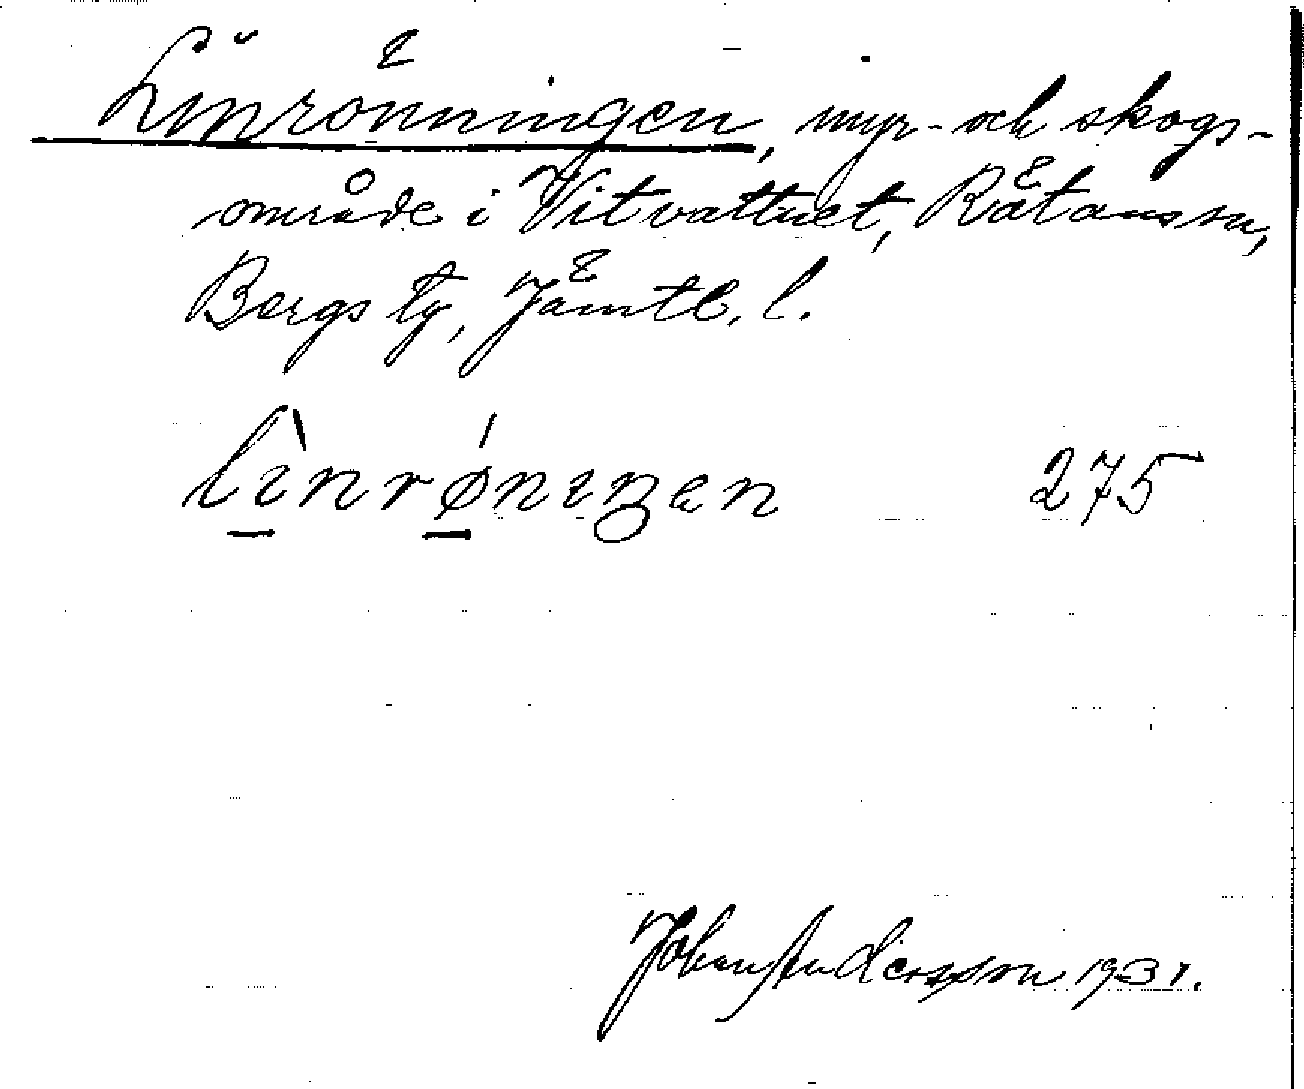 Linrönningen, myr- och skogs-
område i Vitvattnet, Rätans sn,
Bergs tg, Jämtl. l.
lìnrǿnıŋen 275
Johan Andersson 1931.